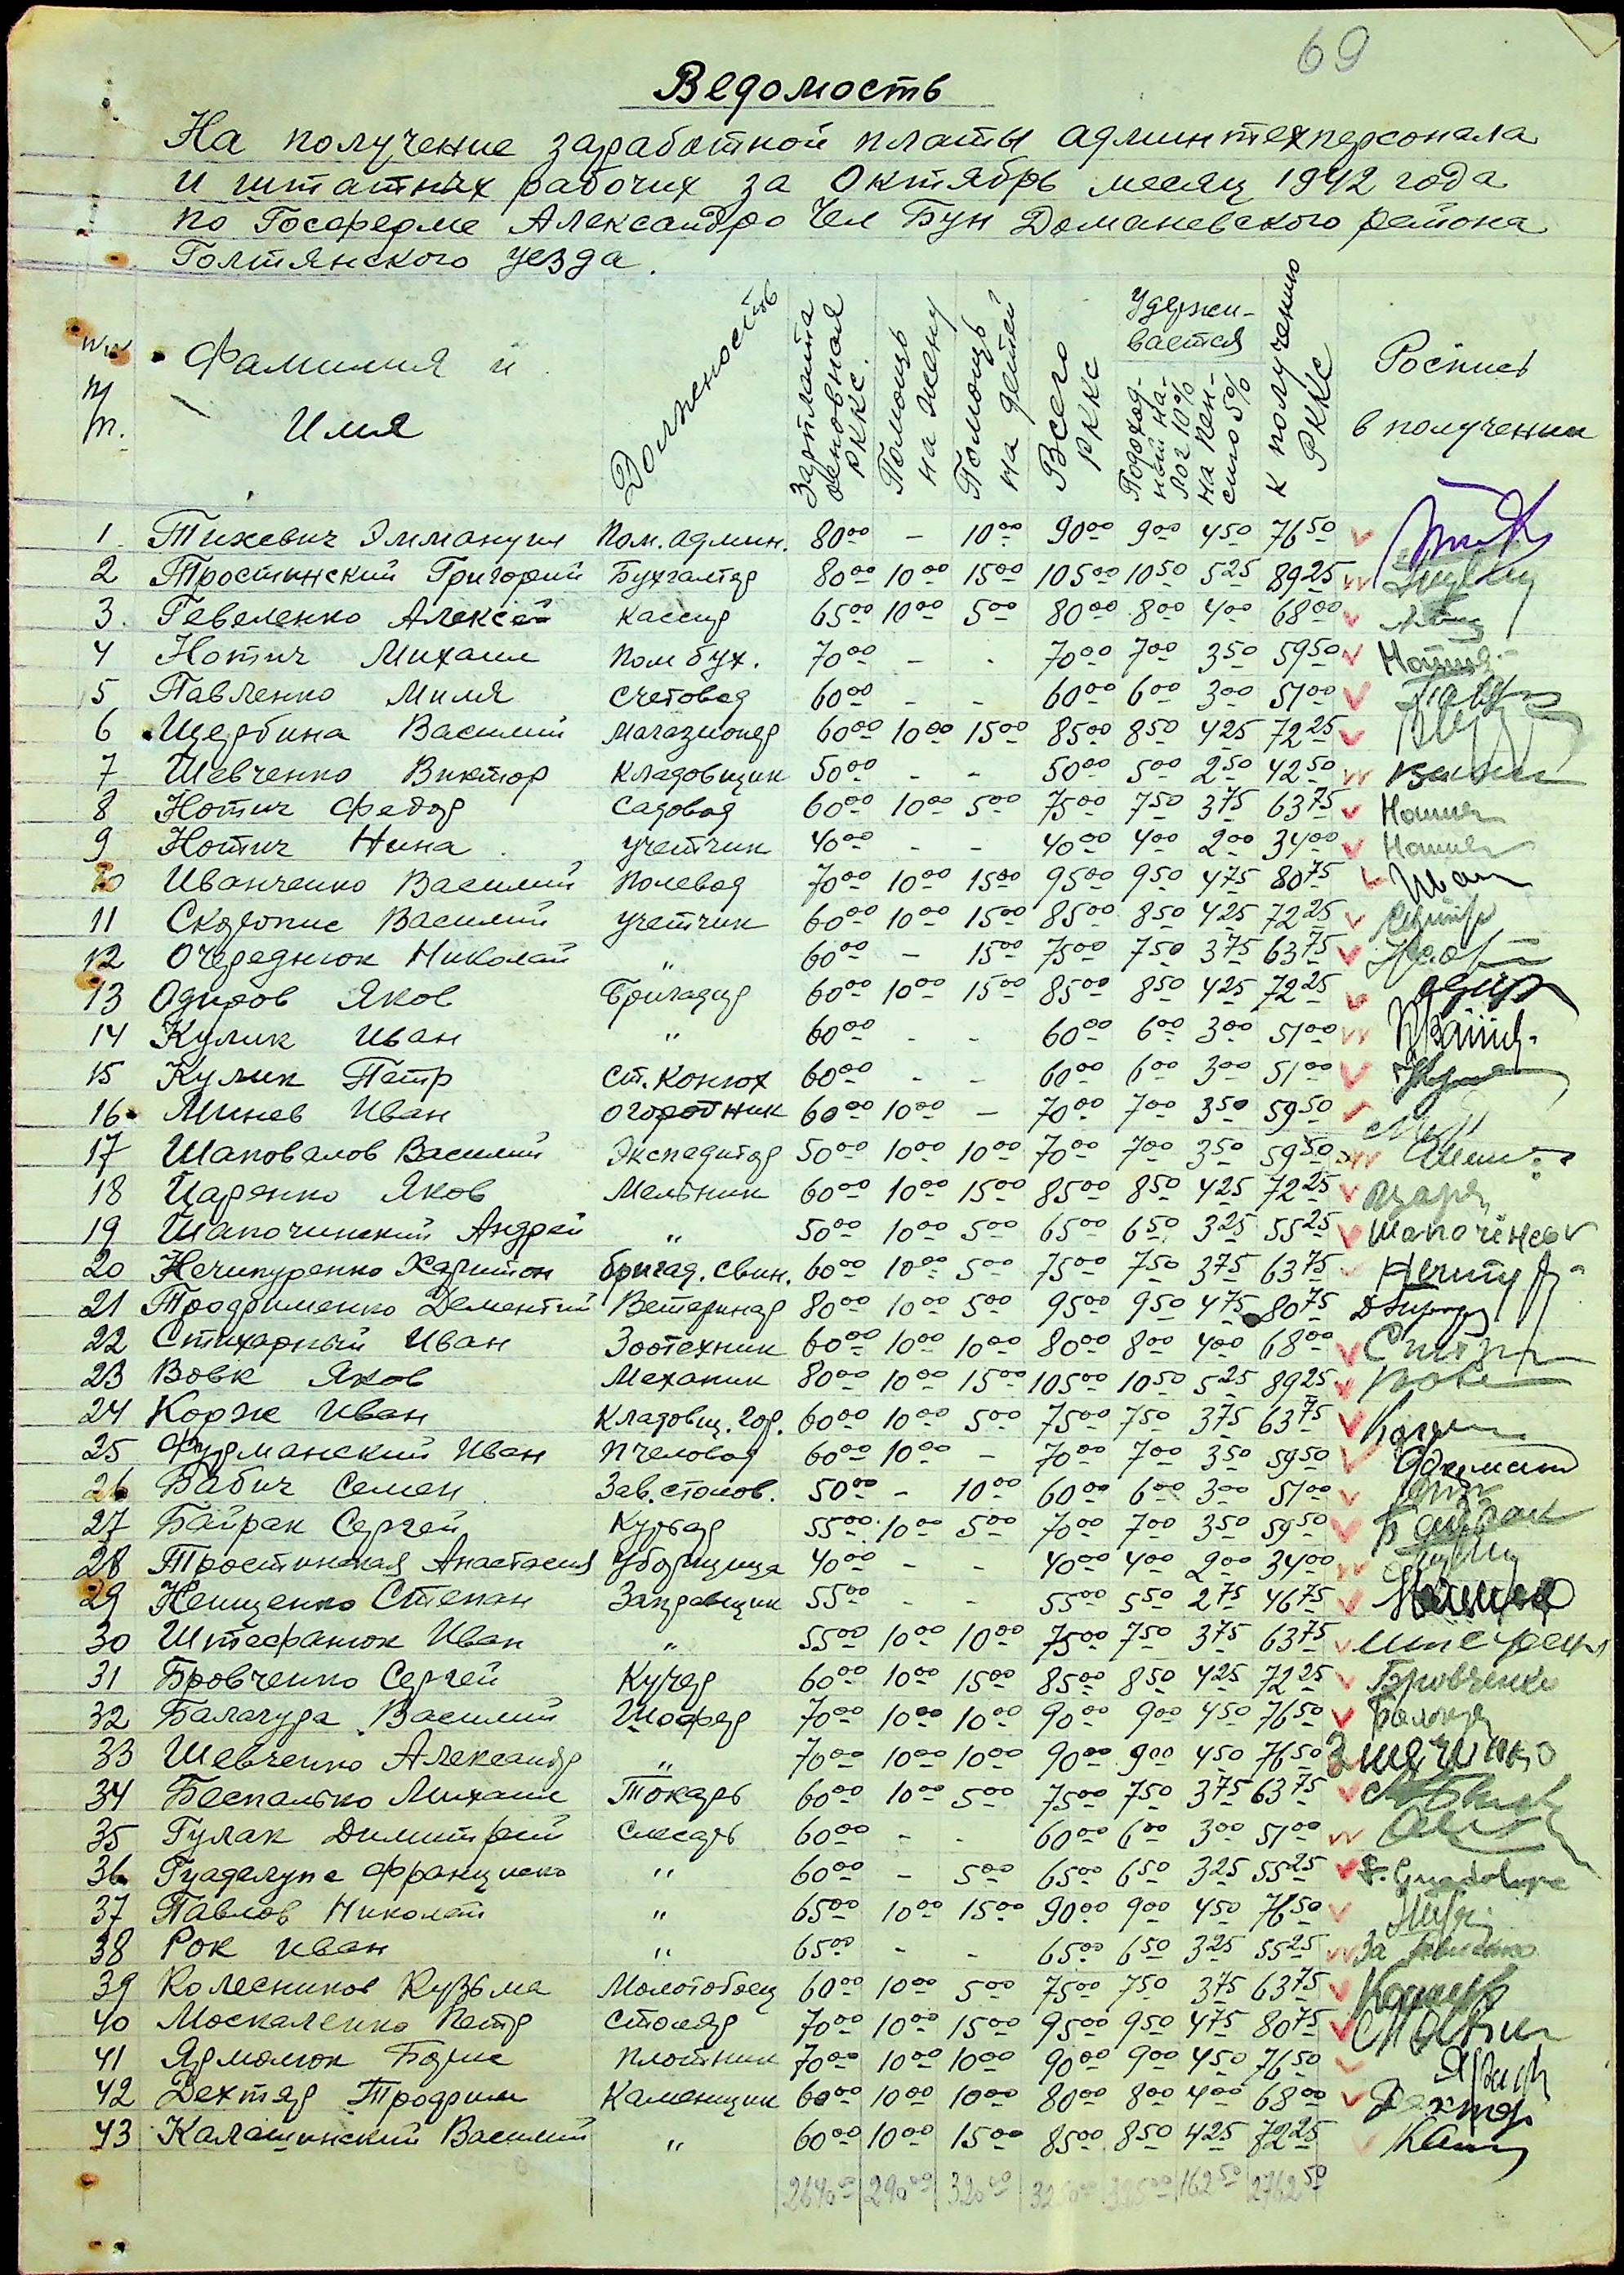 69
Ведомость
На получение заработной платы админтехперсонала
и штатных рабочих за Октябрь месяц 1942 года
по Госферме Александро Чел Бун Доманевского района
Голтянского уезда.
NN п/п. Фамилия и Имя Должность Зарплата основная РККС. Помощь на жену Помощь на детей Всего РККС Удерживается Подоходный налог 10% на пенсию 5% К получению РККС Роспись в получении
1 Тихевич Эммануил Пом. админ. 80 00 - 10 00 90 00 9 00 4 50 76 50
2 Тростинский Григорий Бухгалтер 80 00 10 00 15 00 105 00 10 50 5 25 89 25
3. Гевеленко Алексей Кассир 65 00 10 00 5 00 80 00 8 00 4 00 68 00
4 Нотич Михаил Пом бух. 70 00 - - 70 00 7 00 3 50 59 50
5 Павленко Миля счетовод 60 00 - - 60 00 6 00 3 00 51 00
6 Щербина Василий Магазионер 60 00 10 00 15 00 85 00 8 50 4 25 72 25
7 Шевченко Виктор Кладовщик 50 00 - - 50 00 5 00 2 50 42 50
8 Нотич Федор Садовод 60 00 10 00 5 00 75 00 7 50 3 75 63 75
9 Нотич Нина учетчик 40 00 - - 40 00 4 00 2 00 34 00
10 Иванченко Василий Полевод 70 00 10 00 15 00 95 00 9 50 4 75 80 75
11 Скоропис Василий учетчик 60 00 10 00 15 00 85 00 8 50 4 25 72 25
12 Очереднюк Николай " 60 00 - 15 00 75 00 7 50 3 75 63 75
13 Одиров Яков Бригадир 60 00 10 00 15 00 85 00 8 50 4 25 72 25
14 Кулик Иван " 60 00 - - 60 00 6 00 3 00 51 00
15 Кулик Петр ст. Конюх 60 00 - - 60 00 6 00 3 00 51 00
16 Минев Иван огородник 60 00 10 00 - 70 00 7 00 3 50 59 50
17 Шаповалов Василий Экспедитор 50 00 10 00 10 00 70 00 7 00 3 50 59 50
18 Царенко Яков Мельник 60 00 10 00 15 00 85 00 8 50 4 25 72 25
19 Шапочинский Андрей " 50 00 10 00 5 00 65 00 6 50 3 25 55 25
20 Нечипуренко Харитон бригад. свин. 60 00 10 00 5 00 75 00 7 50 3 75 63 75
21 Трофименко Дементий Ветеринар 80 00 10 00 5 00 95 00 9 50 4 75 80 75
22 Стихарный Иван Зоотехник 60 00 10 00 10 00 80 00 8 00 4 00 68 00
23 Вовк Яков Механик 80 00 10 00 15 00 105 00 10 50 5 25 89 25
24 Корж Иван Кладовщ. гор. 60 00 10 00 5 00 75 00 7 50 3 75 63 75
25 Фурманский Иван Пчеловод 60 00 10 00 - 70 00 7 00 3 50 59 50
26 Бабич Семен Зав. столов. 50 00 - 10 00 60 00 6 00 3 00 51 00
27 Байрак Сергей Курьер 55 00 10 00 5 00 70 00 7 00 3 50 59 50 Байрак
28 Тростинская Анастасия Уборщица 40 00 - - 40 00 4 00 2 00 34 00
29 Нещенко Степан Заправщик 55 00 - - 55 00 5 50 2 75 46 75
30 Штефанюк Иван " 55 00 10 00 10 00 75 00 7 50 3 75 63 75
31 Бровченко Сергей Кучер 60 00 10 00 15 00 85 00 8 50 4 25 72 25 Бровченко
32 Балагура Василий Шофер 70 00 10 00 10 00 90 00 9 00 4 50 76 50
33 Шевченко Александр " 70 00 10 00 10 00 90 00 9 00 4 50 76 50
34 Беспалько Михаил Токарь 60 00 10 00 5 00 75 00 7 50 3 75 63 75
35 Гулак Димитрей Слесарь 60 00 - - 60 00 6 00 3 00 51 00
36 Гуаделупе Франциско " 60 00 - 5 00 65 00 6 50 3 25 55 25 F. Guadalupe
37 Павлов Николай " 65 00 10 00 15 00 90 00 9 00 4 50 76 50
38 Рок Иван " 65 00 - - 65 00 6 50 3 25 55 25 За
39 Колесников Кузьма Молотобоец 60 00 10 00 5 00 75 00 7 50 3 75 63 75
40 Москаленко Петр Столяр 70 00 10 00 15 00 95 00 9 50 4 75 80 75
41 Ярмолюк Борис Плотник 70 00 10 00 10 00 90 00 9 00 4 50 76 50
42 Дехтяр Трофим Каменщик 60 00 10 00 10 00 80 00 8 00 4 00 68 00
43 Калашинский Василий " 60 00 10 00 15 00 85 00 8 50 4 25 72 25
2640 00 290 00 320 00 325 00 162 50 2762 50